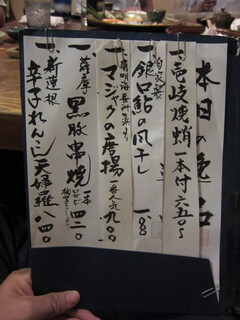 本日の逸品
一、壱岐焼蛸 一本付 六五〇〜
自家製
一、銀口鮎の風干し 一、〇〇
マジャクの唐揚 一人前 九〇〇
薩摩
黒豚串焼 一本 四二〇
一、新蓮根
辛子れんこん天婦羅 八四〇